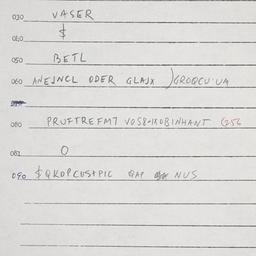 030 VASER
040 $
050 BETL
060 ANEJNCL ODER GLAJX )GROQCU'UA
080 PRUFTREFM7 VOS8-1ROBINHANT (256
082 O
090 $QKOPCUS+PIC GAP NUS